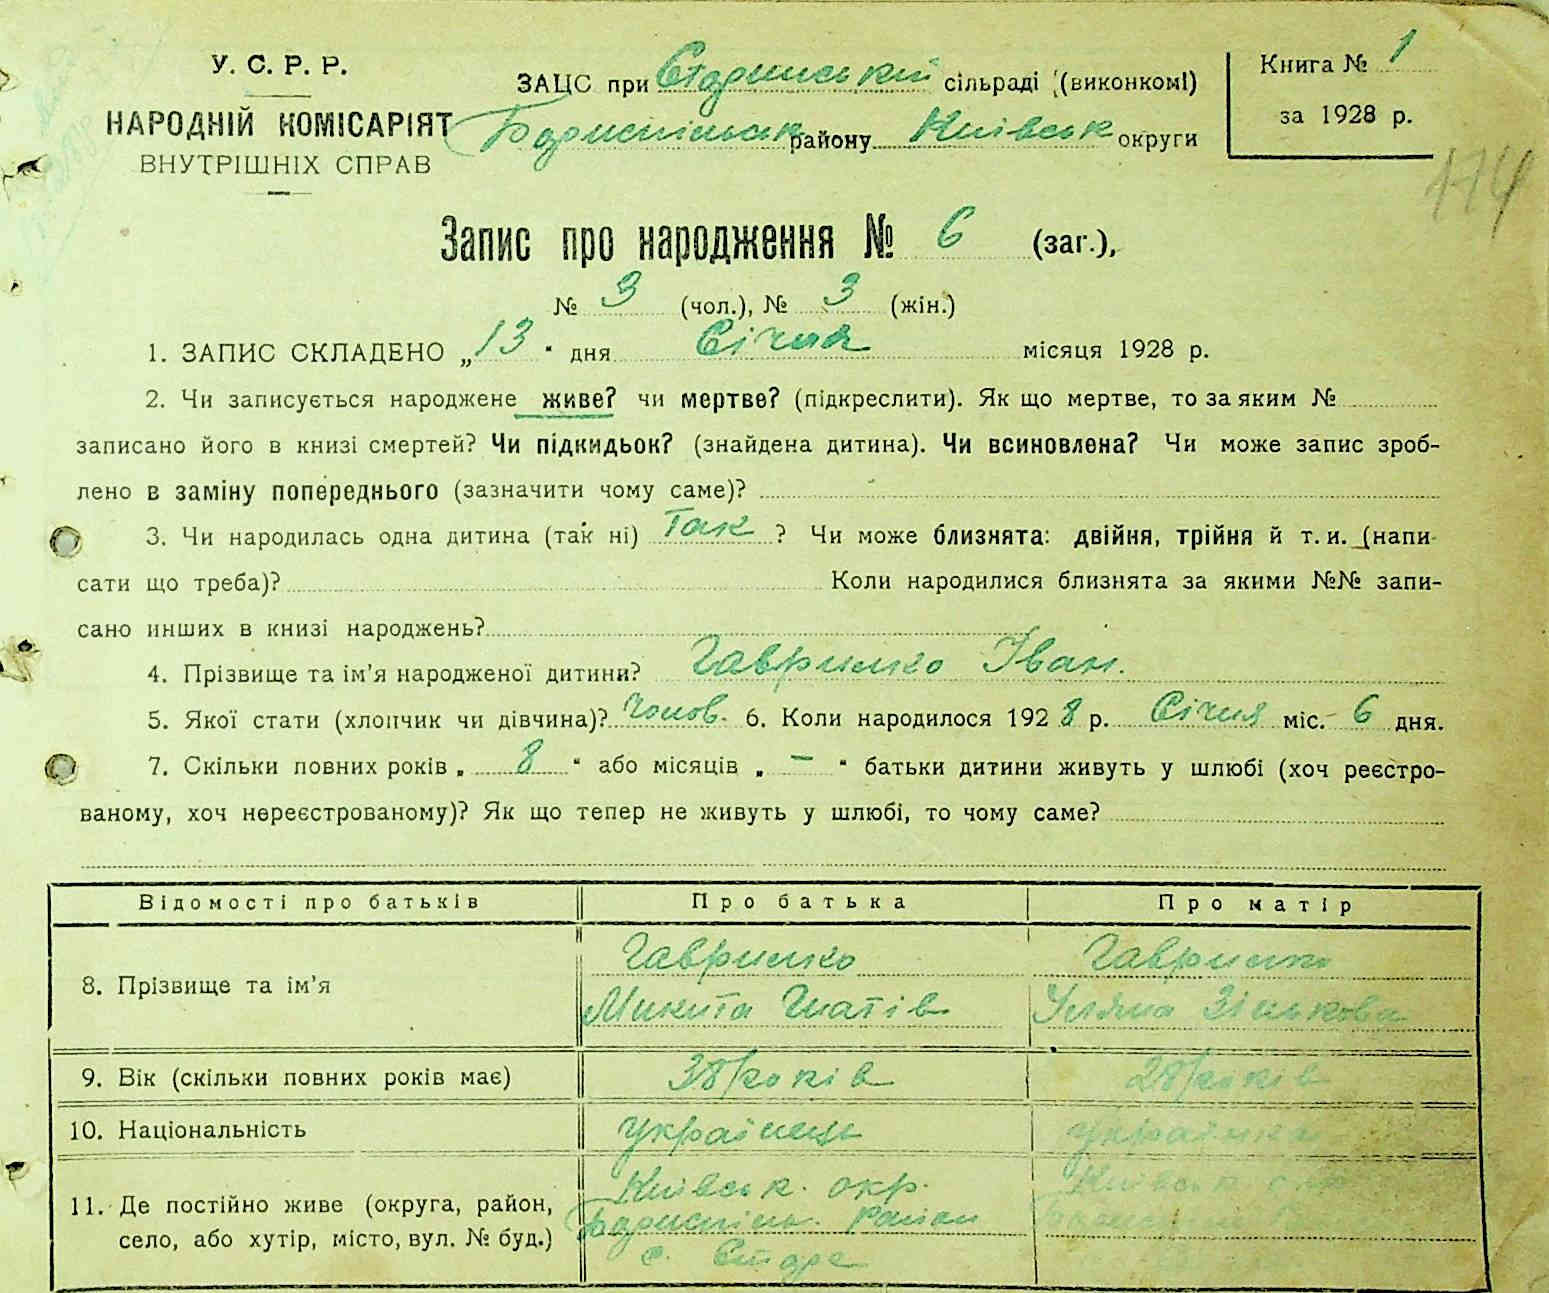 У. С. Р. Р.
НАРОДНІЙ КОМІСАРІЯТ
ВНУТРІШНІХ СПРАВ
ЗАЦС при Старинській сільраді (виконкомі)
Бориспільськ району Київськ округи
Книга № 1
за 1928 р.
174
Запис про народження № 6 (заг.),
№ 3 (чол.), № 3 (жін.)
1. ЗАПИС СКЛАДЕНО „13" дня Січня місяця 1928 р.
2. Чи записується народжене живе? чи мертве? (підкреслити). Як що мертве, то за яким №
записано його в книзі смертей? Чи підкидьок? (знайдена дитина). Чи всиновлена? Чи може запис зроб-
лено в заміну попереднього (зазначити чому саме)?
3. Чи народилась одна дитина (так ні) Так? Чи може близнята: двійня, трійня й т. и. (напи-
сати що треба)? Коли народилися близнята за якими №№ запи-
сано инших в книзі народжень?
4. Прізвище та ім'я народженої дитини? Гаврилко Іван.
5. Якої стати (хлопчик чи дівчина)? Чолов. 6. Коли народилося 1928 р. Січня міс. 6 дня.
7. Скільки повних років „ 8 " або місяців „ — " батьки дитини живуть у шлюбі (хоч реєстро-
ваному, хоч нереєстрованому)? Як що тепер не живуть у шлюбі, то чому саме?
Відомості про батьків Про батька Про матір
8. Прізвище та ім'я
Гаврилко
Микита Гнатів
Гаврилко
Уляна Зінькова
9. Вік (скільки повних років має) 38 років 28 років
10. Національність Українець Українка
11. Де постійно живе (округа, район,
село, або хутір, місто, вул. № буд.)
Київськ. окр.
Бориспіль. Район
с. Старе
Київськ окр